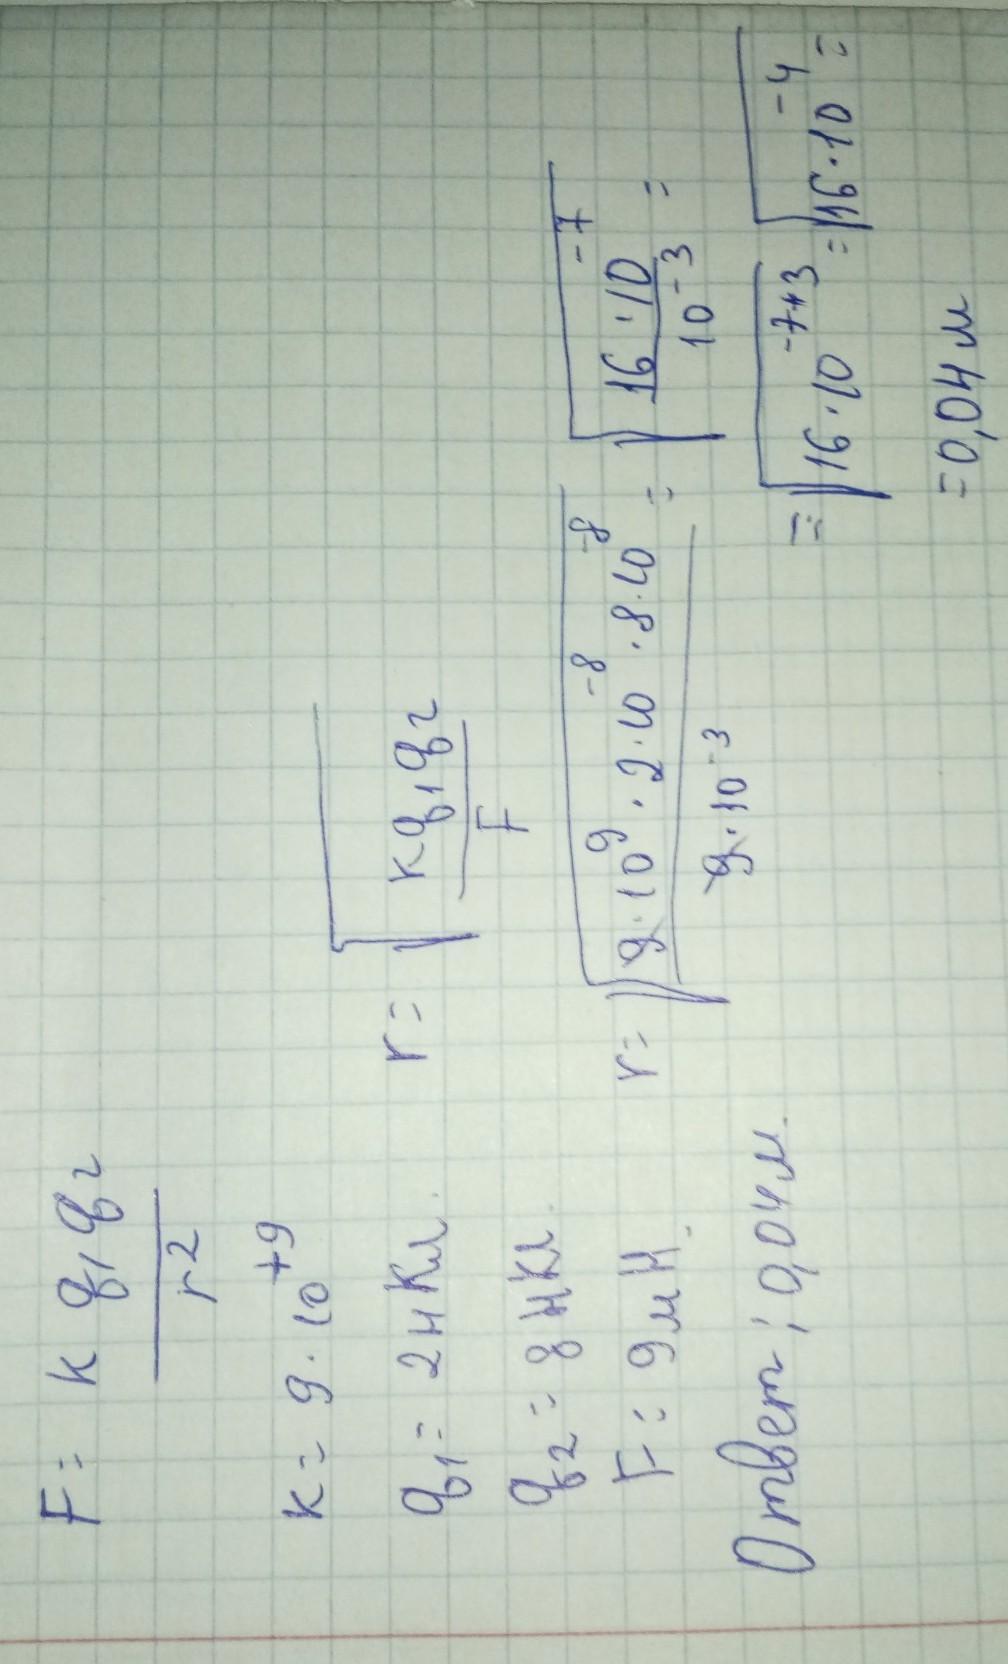 F = k q₁q₂ / r²
k = 9 · 10⁺⁹
q₁ = 2 нКл.
q₂ = 8 нКл.
F = 9 мН.
r = √(kq₁q₂ / F)
r = √(9 · 10⁹ · 2 · 10⁻⁸ · 8 · 10⁻⁸ / 9 · 10⁻³) = √(16 · 10⁻⁷ / 10⁻³) =
= √(16 · 10⁻⁷⁺³) = √(16 · 10⁻⁴) =
= 0,04 м
Ответ: 0,04 м.